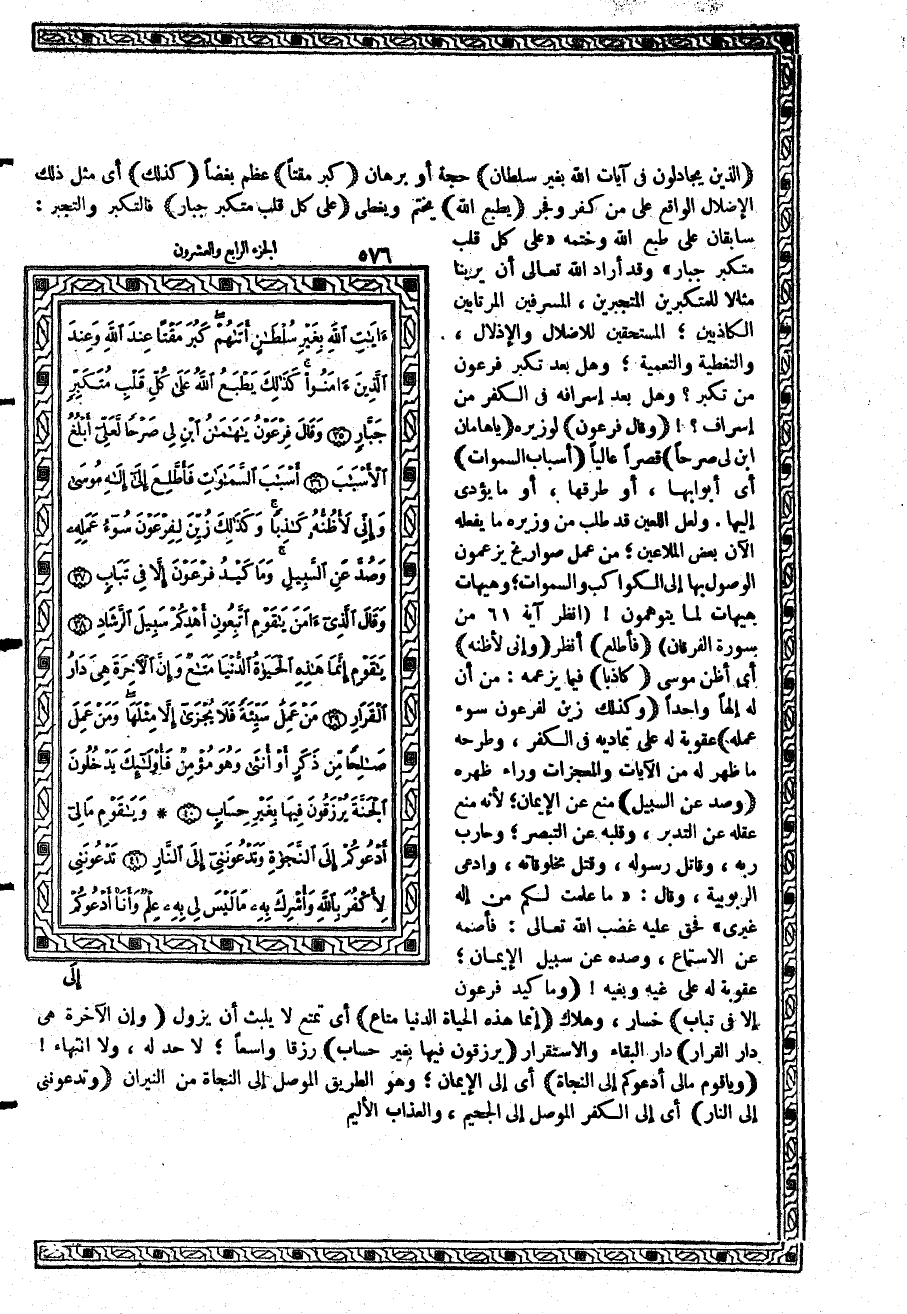 (الذين يجادلون فى آيات الله بغير سلطان) حجة أو برهان (كبر مقتاً) عظم بغضاً (كذلك) أى مثل ذلك
الإضلال الواقع على من كفر وفجر (يطبع الله) يختم ويغطى (على كل قلب متكبر جبار) فالتكبر والتجبر :
سابقان على طبع الله وختمه «على كل قلب
متكبر جبار» وقد أراد الله تعالى أن يرينا
مثالا للمتكبرين المتجبرين ، المسرفين المرتابين
الكاذبين ؛ المستحقين للاضلال والإذلال ،
والتغطية والتعمية ؛ وهل بعد تكبر فرعون
من تكبر ؟ وهل بعد إسرافه فى الكفر من
إسراف ؟ ! (وقال فرعون) لوزيره (ياهامان
ابن لى صرحاً) قصراً عالياً (أسباب السموات)
أى أبوابها ، أو طرقها ، أو ما يؤدى
إليها . ولعل اللعين قد طلب من وزيره ما يفعله
الآن بعض الملاعين ؛ من عمل صواريخ يزعمون
الوصول بها إلى الكواكب والسموات ؛ وهيهات
هيهات لما يتوهمون ! (انظر آية ٦١ من
سورة الفرقان) (فأطلع) أنظر (وإنى لأظنه)
أى أظن موسى (كاذبا) فيما يزعمه : من أن
له إلهاً واحداً (وكذلك زين لفرعون سوء
عمله) عقوبة له على تماديه فى الكفر ، وطرحه
ما ظهر له من الآيات والمعجزات وراء ظهره
(وصد عن السبيل) منع عن الإيمان ؛ لأنه منع
عقله عن التدبر ، وقلبه عن التبصر ؛ وحارب
ربه ، وقاتل رسوله ، وقتل مخلوقاته ، وادعى
الربوبية ، وقال : « ما علمت لكم من إله
غيرى» فحق عليه غضب الله تعالى : فأصمه
عن الاستماع ، وصده عن سبيل الإيمان ؛
عقوبة له على غيه وبغيه ! (وما كيد فرعون
إلا فى تباب) خسار ، وهلاك (إنما هذه الحياة الدنيا متاع) أى تمتع لا يلبث أن يزول (وإن الآخرة هى
دار القرار) دار البقاء والاستقرار (يرزقون فيها بغير حساب) رزقا واسعاً ؛ لا حد له ، ولا انتهاء !
(وياقوم مالى أدعوكم إلى النجاة) أى إلى الإيمان ؛ وهو الطريق الموصل إلى النجاة من النيران (وتدعوننى
إلى النار) أى إلى الكفر الموصل إلى الجحيم ، والعذاب الأليم
٥٧٦ الجزء الرابع والعشرون
ءَايَٰتِ ٱللَّهِ بِغَيْرِ سُلْطَٰنٍ أَتَىٰهُمْ ۖ كَبُرَ مَقْتًا عِندَ ٱللَّهِ وَعِندَ
ٱلَّذِينَ ءَامَنُوا۟ ۚ كَذَٰلِكَ يَطْبَعُ ٱللَّهُ عَلَىٰ كُلِّ قَلْبِ مُتَكَبِّرٍ
جَبَّارٍ ﴿٣٥﴾ وَقَالَ فِرْعَوْنُ يَٰهَٰمَٰنُ ٱبْنِ لِى صَرْحًا لَّعَلِّىٓ أَبْلُغُ
ٱلْأَسْبَٰبَ ﴿٣٦﴾ أَسْبَٰبَ ٱلسَّمَٰوَٰتِ فَأَطَّلِعَ إِلَىٰٓ إِلَٰهِ مُوسَىٰ
وَإِنِّى لَأَظُنُّهُۥ كَٰذِبًا ۚ وَكَذَٰلِكَ زُيِّنَ لِفِرْعَوْنَ سُوٓءُ عَمَلِهِۦ
وَصُدَّ عَنِ ٱلسَّبِيلِ ۚ وَمَا كَيْدُ فِرْعَوْنَ إِلَّا فِى تَبَابٍ ﴿٣٧﴾
وَقَالَ ٱلَّذِىٓ ءَامَنَ يَٰقَوْمِ ٱتَّبِعُونِ أَهْدِكُمْ سَبِيلَ ٱلرَّشَادِ ﴿٣٨﴾
يَٰقَوْمِ إِنَّمَا هَٰذِهِ ٱلْحَيَوٰةُ ٱلدُّنْيَا مَتَٰعٌ وَإِنَّ ٱلْءَاخِرَةَ هِىَ دَارُ
ٱلْقَرَارِ ﴿٣٩﴾ مَنْ عَمِلَ سَيِّئَةً فَلَا يُجْزَىٰٓ إِلَّا مِثْلَهَا ۖ وَمَنْ عَمِلَ
صَٰلِحًا مِّن ذَكَرٍ أَوْ أُنثَىٰ وَهُوَ مُؤْمِنٌ فَأُو۟لَٰٓئِكَ يَدْخُلُونَ
ٱلْجَنَّةَ يُرْزَقُونَ فِيهَا بِغَيْرِ حِسَابٍ ﴿٤٠﴾ * وَيَٰقَوْمِ مَا لِىٓ
أَدْعُوكُمْ إِلَى ٱلنَّجَوٰةِ وَتَدْعُونَنِىٓ إِلَى ٱلنَّارِ ﴿٤١﴾ تَدْعُونَنِى
لِأَكْفُرَ بِٱللَّهِ وَأُشْرِكَ بِهِۦ مَا لَيْسَ لِى بِهِۦ عِلْمٌ وَأَنَا۠ أَدْعُوكُمْ
إِلَى